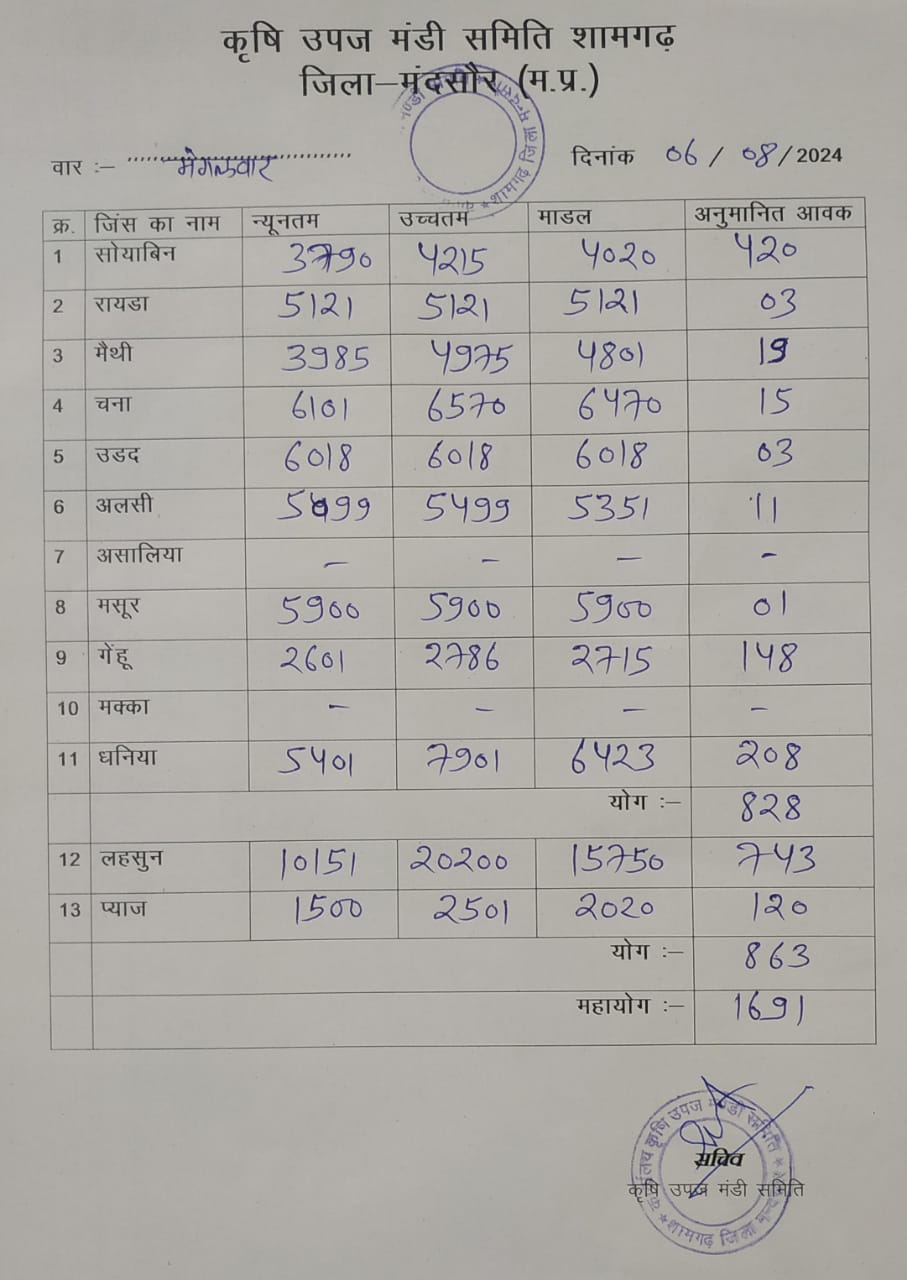 कृषि उपज मंडी समिति शामगढ़
जिला–मंदसौर (म.प्र.)
वार :– मंगलवार दिनांक 06 / 08 / 2024
क्र. जिंस का नाम न्यूनतम उच्चतम माडल अनुमानित आवक
1 सोयाबिन 3790 4215 4020 420
2 रायडा 5121 5121 5121 03
3 मैथी 3985 4975 4801 19
4 चना 6101 6570 6470 15
5 उडद 6018 6018 6018 03
6 अलसी 5499 5351 11
7 असालिया – – – –
8 मसूर 5900 5900 5900 01
9 गेंहू 2601 2786 2715 148
10 मक्का – – – –
11 धनिया 5401 7901 6423 208
योग :– 828
12 लहसुन 10151 20200 15750 743
13 प्याज 1500 2501 2020 120
योग :– 863
महायोग :– 1691
सचिव
कृषि उपज मंडी समिति